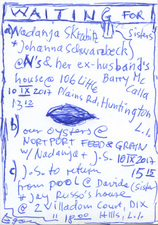 WAITING FOR
a) Nadanja Skrabin (sisters)
+ Johanna Schwarzbeck
@ N's & her ex-husband's
house @ 106 Little Barry Mc Calla
10 IX 2017 Plains Rd. Huntington
13 12 L.I.
b) our oysters @
NORTPORT FEED & GRAIN
w/ Nadanja + J.S. 10 IX 2017
c) J.S. to return 15 15
from POOL @ Davide (sister)
+ Jan Russo's house
@ 2 Villadom Court, DIX
" 18 00 Hills, L.I.